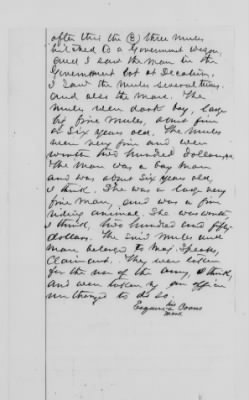 after this the (3) three mules
hitched to a Government wagon,
and I saw the man in the
Government lot at Decatur.
I saw the mules several times.
and also the mare. The
mules were dark bay, large
by fine mules, about five
or six years old. The mules
were very fine and were
worth two hundred dollars.
The mare was a bay mare
and was about six years old,
I think. She was a large very
fine mare, and was a fine
riding animal. She was worth,
I think, two hundred and fifty
dollars. The said mules and
mare belonged to Speake,
Claimant. They were taken
for the use of the army, I think,
and were taken by an officer
to do so.
his
Evans
mark